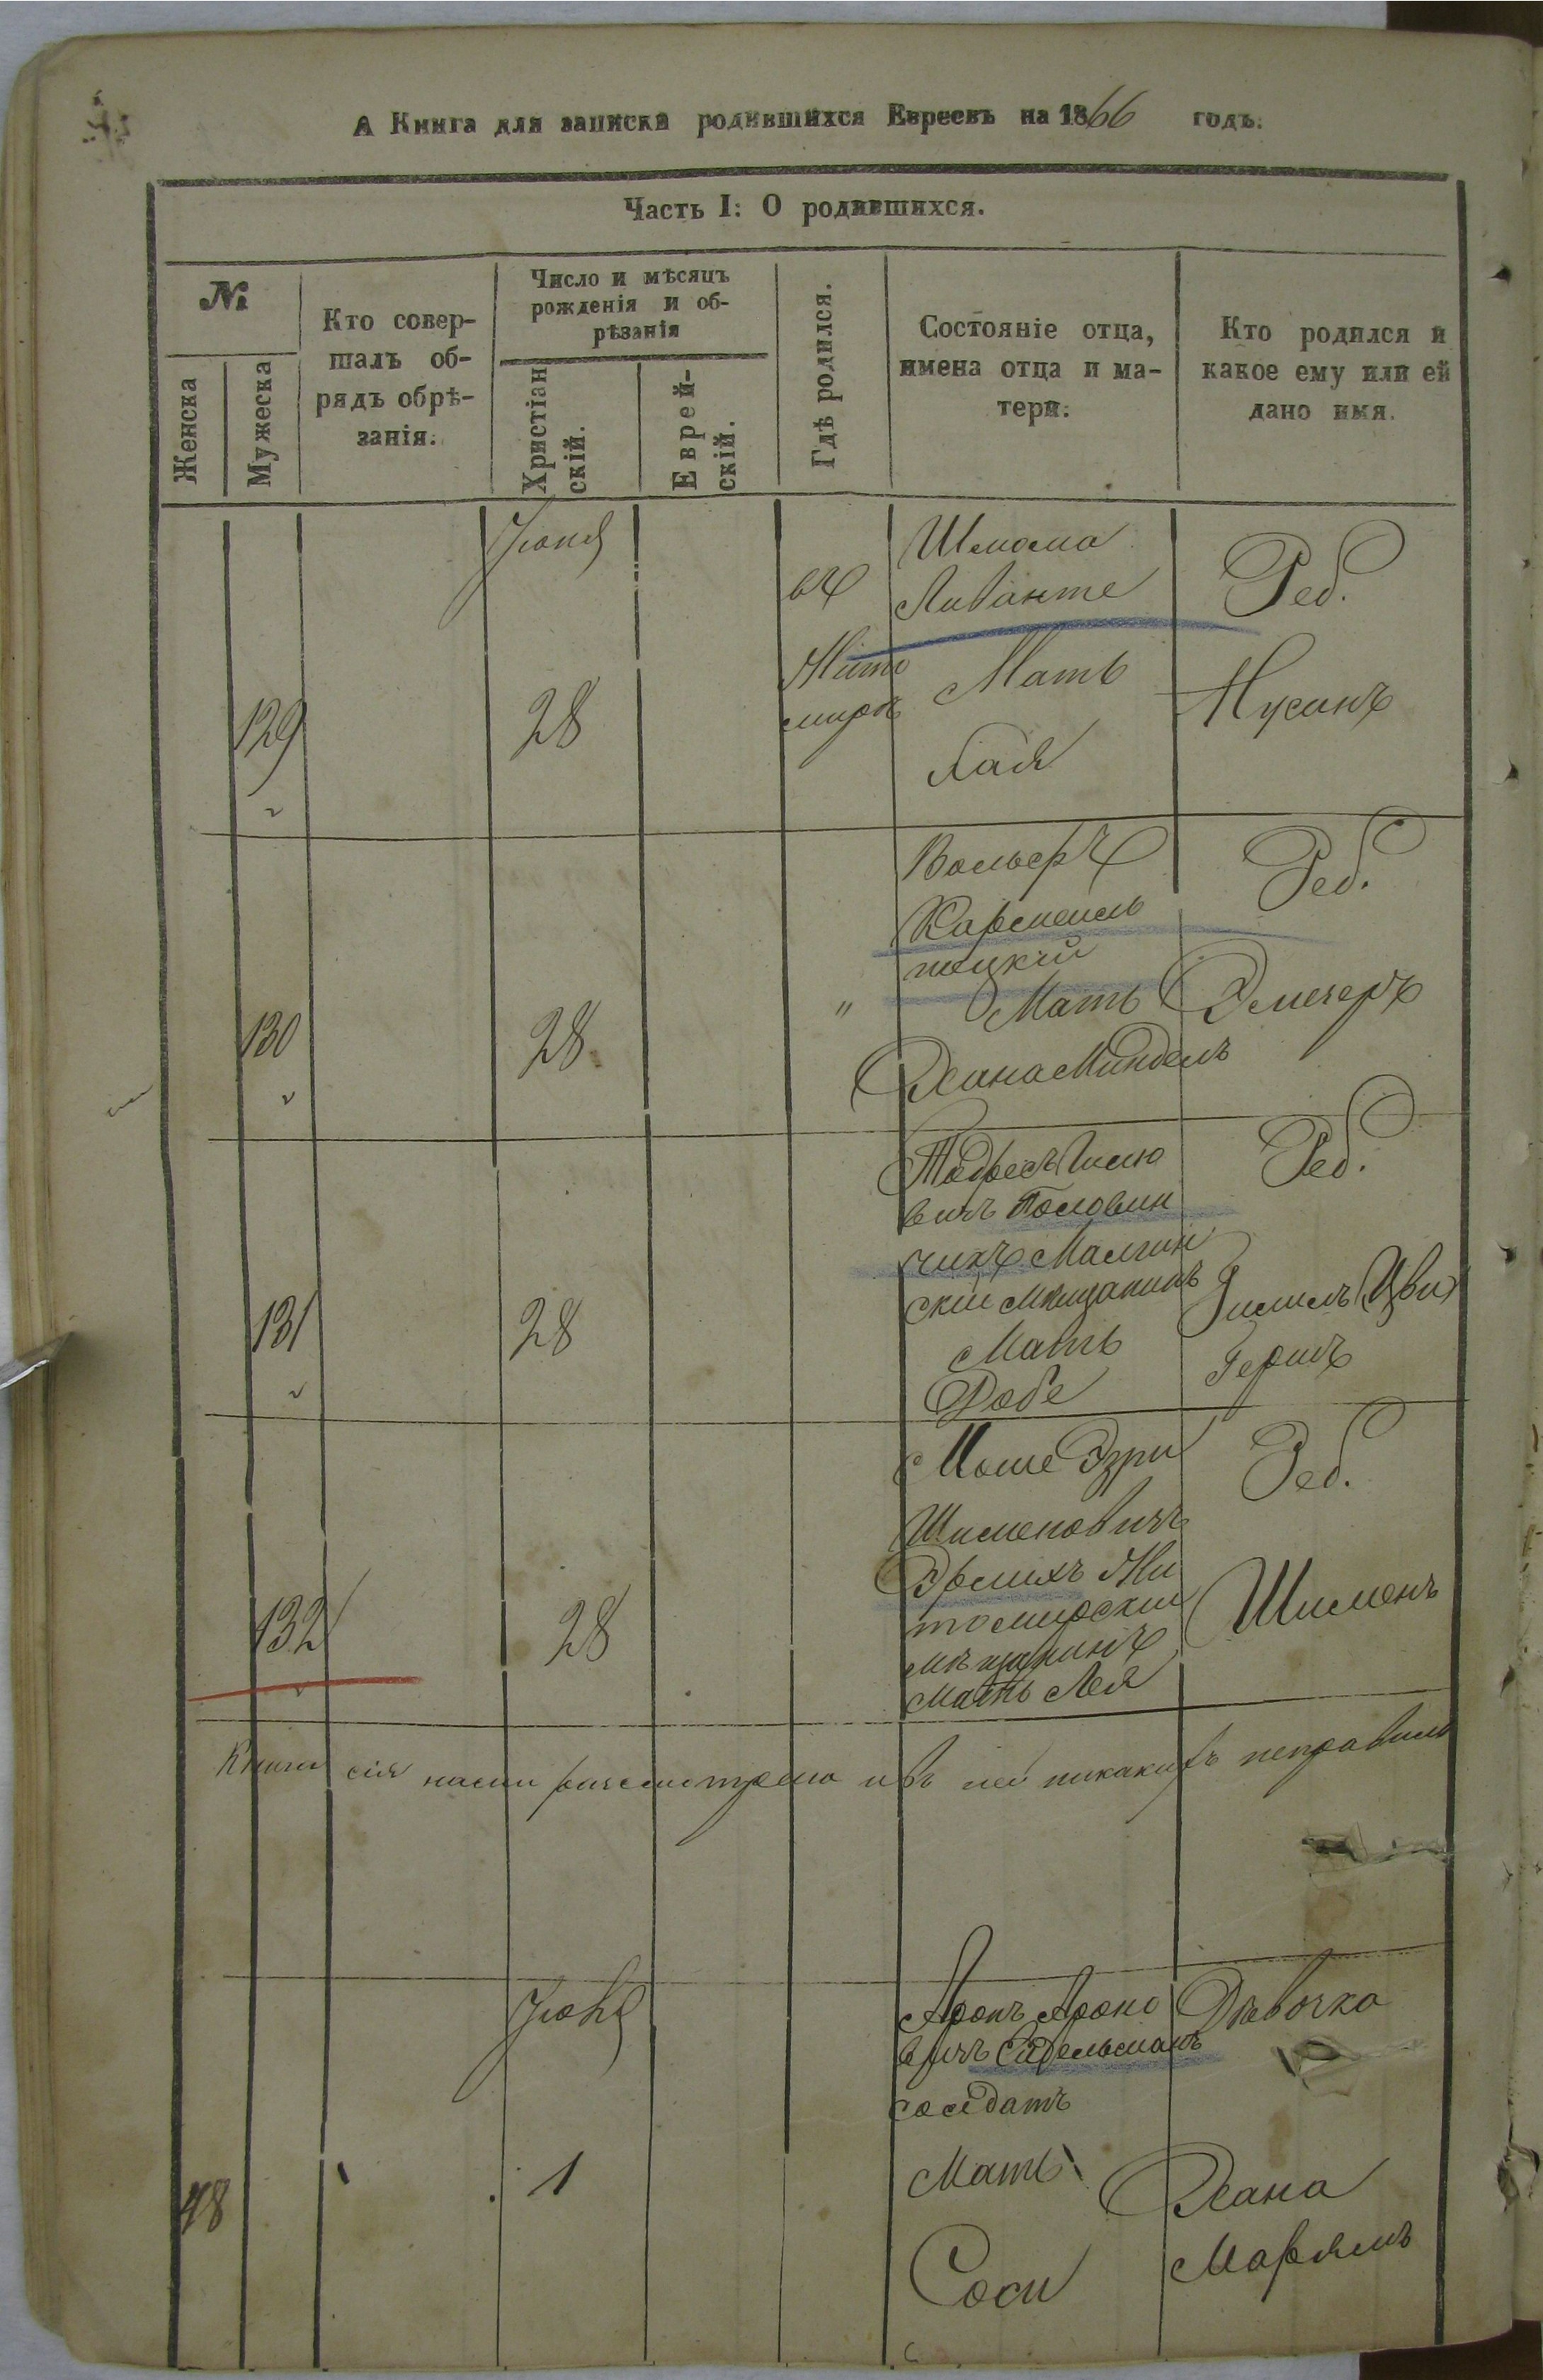 А Книга для записки родившихся Евреевъ на 1866 годъ.
Часть I: О родившихся.
№
Женска
Мужеска
Кто совер-
шалъ об-
рядъ обрѣ-
занія.
Число и мѣсяцъ
рожденія и об-
рѣзанія
Христіан
скій.
Еврей-
скій.
Гдѣ родился.
Состояніе отца,
имена отца и ма-
тери.
Кто родился и
какое ему или ей
дано имя.
129
Іюня
28
въ
Жито
мирѣ
Шлиома
Ливанте
Мать
Хая
Реб.
Нусинъ
130
28
"
Вольфъ
Мать
Хана Миндель
Реб.
Элиезеръ
131
28
вичъ Половин
чикъ
скій мѣщанинъ
Мать
Добе
Реб.
Гимпель Цви
Гершъ
132
28
Моше Эзри
Шименовичъ
Эрлихъ Жи
томирскій
мѣщанинъ
Мать Лея
Реб.
Шименъ
Книга сія нами разсмотрена и въ ней никакихъ неправиль
48
Іюня
1
Аронъ Ароно
вичъ Сидельманъ
солдатъ
Мать
Соси
Дѣвочка
Хана
Марьямъ